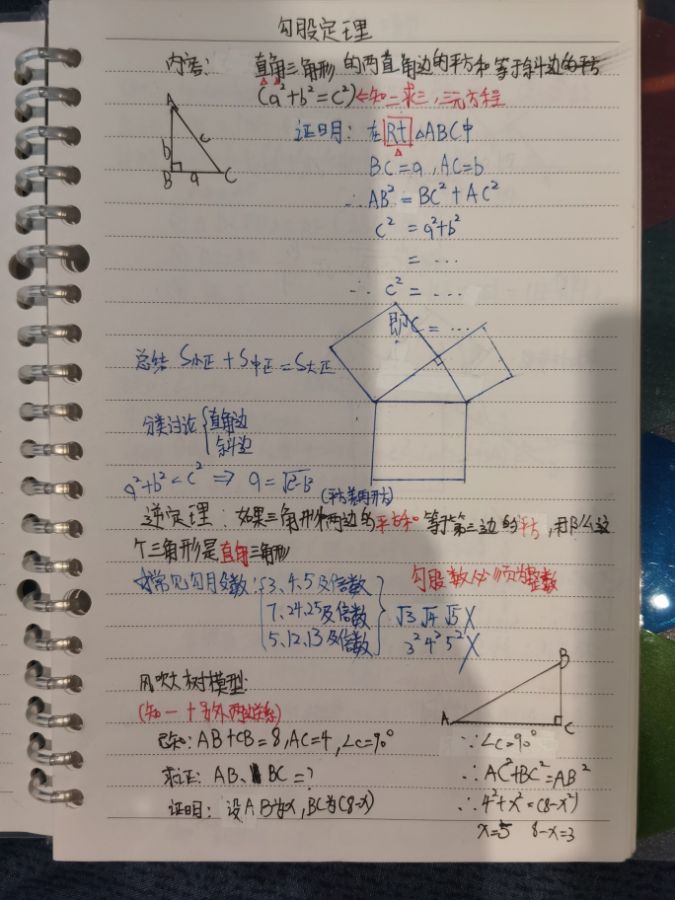 勾股定理
内容: 直角三角形的两直角边的平方和等于斜边的平方
(a²+b²=c²)←知二求三,三元方程
A
b c
B a C
证明: 在Rt△ABC中
BC=a,AC=b
∴AB²=BC²+AC²
c²=a²+b²
=…
∴c²=…
即c=…
总结 S小正+S中正=S大正
分类讨论{直角边
斜边
a²+b²=c²⇒a=√c²-b²
(平方差再开方)
逆定理: 如果三角形两边的平方和等于第三边的平方,那么这
个三角形是直角三角形
常见勾股数:{3、4、5及倍数
7、24、25及倍数
5、12、13及倍数}
勾股数必须为整数
√3 √4 √5 X
3² 4² 5² X
风吹大树模型:
(知一+另外两边关系)
已知:AB+CB=8,AC=4,∠C=90°
求证: AB、BC=?
证明: 设AB为x,BC为(8-x)
B
A C
∵∠C=90°
∴AC²+BC²=AB²
∴4²+x²=(8-x²)
x=5 8-x=3